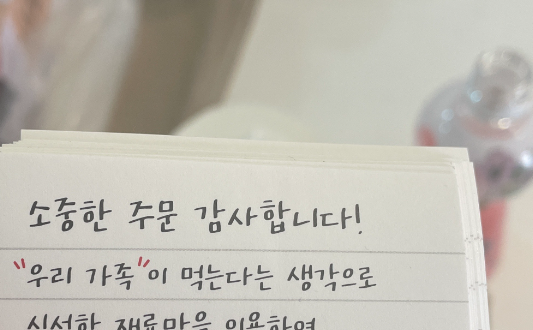 소중한 주문 감사합니다!
"우리 가족"이 먹는다는 생각으로
신선한 재료만을 이용하여